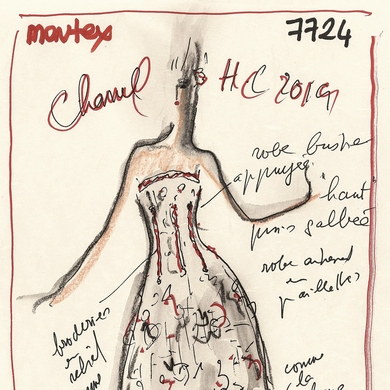 montex
7724
Chanel
HC 2019
robe bustier
appuyée
"haut"
puis galbée
robe
en
paillettes
broderies
en
relief
comme
la